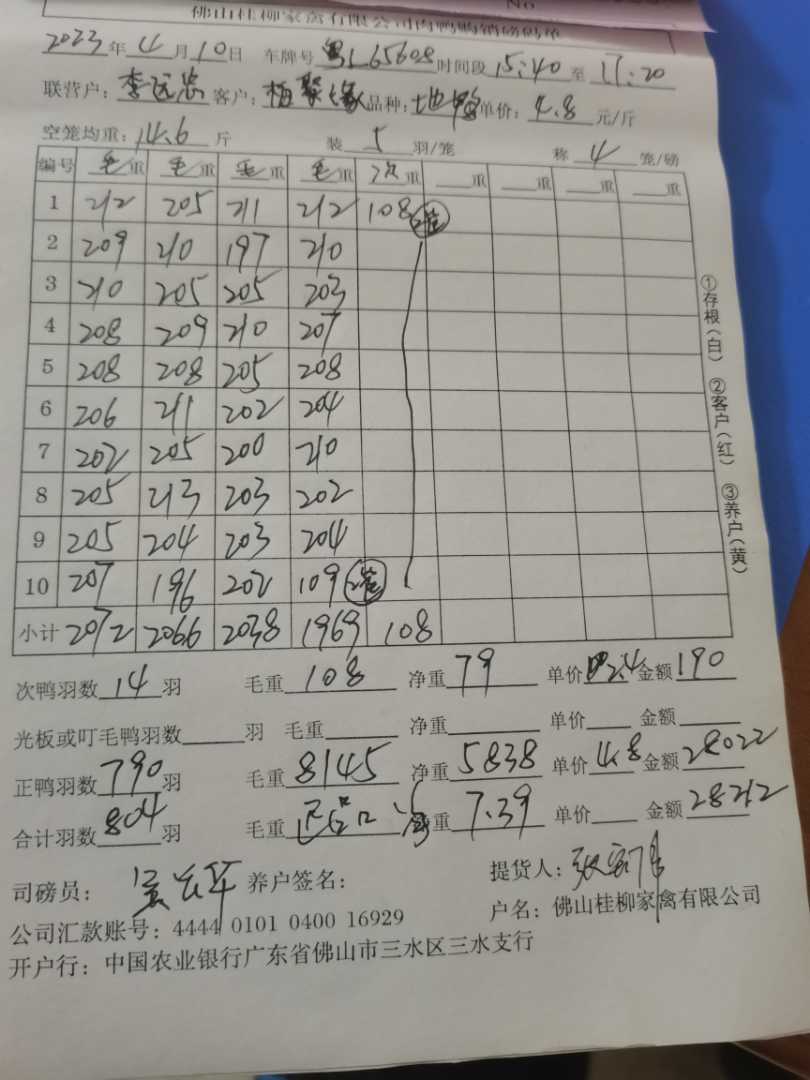 No
佛山桂柳家禽有限公司肉鸭鸭销磅码单
2023年4月10日 车牌号 粤L65608 时间段 15:40 至 17:20
联营户: 李远忠 客户: 梅聚缘 品种: 地鸭 单价: 4.8 元/斤
空笼均重: 14.6 斤 装 5 羽/笼 称 4 笼/磅
编号 毛重 毛重 毛重 毛重 次重 重 重 重 重
1 212 205 211 212 108 2笼
2 209 210 197 210
3 210 205 205 203
4 208 209 210 207
5 208 208 205 208
6 206 211 202 204
7 202 205 200 210
8 205 213 203 202
9 205 204 203 204
10 207 196 202 109 2笼
小计 2072 2066 2038 1969 108
次鸭羽数 14 羽 毛重 108 净重 79 单价 2.4 金额 190
光板或叮毛鸭羽数 羽 毛重 净重 单价 金额
正鸭羽数 790 羽 毛重 8145 净重 5838 单价 4.8 金额 28022
合计羽数 804 羽 毛重 正品口 净重 7.39 单价 金额 28212
司磅员: 养户签名: 提货人:
公司汇款账号: 4444 0101 0400 16929 户名: 佛山桂柳家禽有限公司
开户行: 中国农业银行广东省佛山市三水区三水支行
①存根(白) ②客户(红) ③养户(黄)